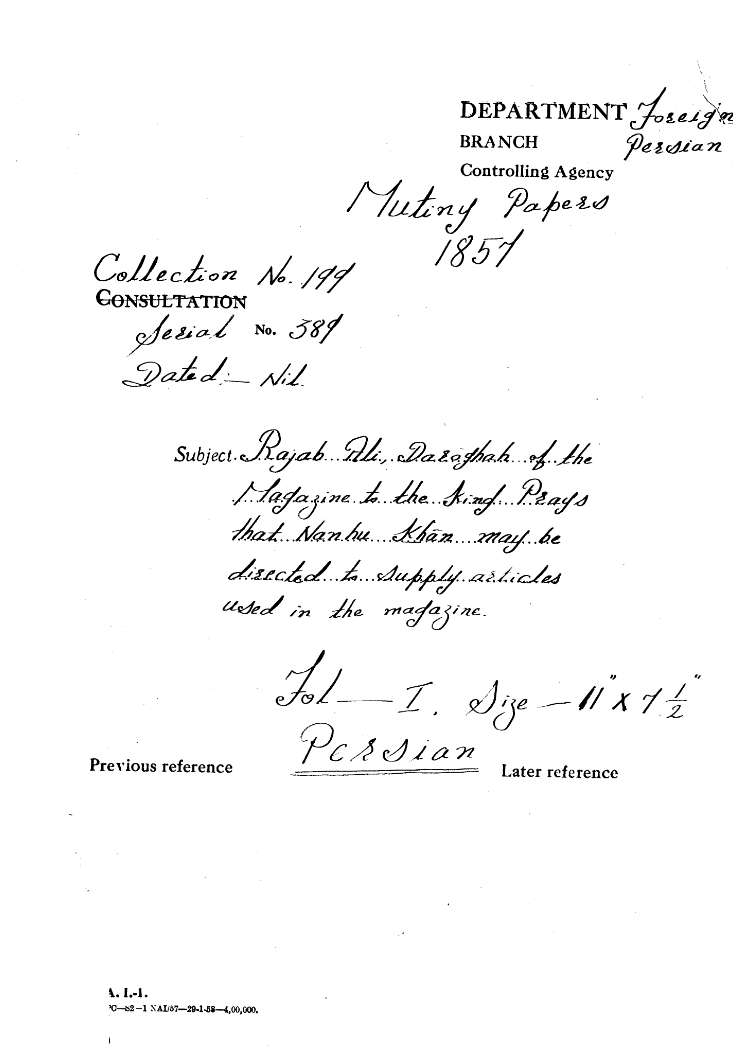 DEPARTMENT Foreign
BRANCH Persian
Controlling Agency
Mutiny Papers
1857
Collection No. 199
CONSULTATION
Serial No. 389
Dated:— Nil.
Subject. Rajab Ali, Daraghah of the
Magazine to the King Prays
that Nanhu Khān may be
directed to supply articles
used in the magazine.
Fol — I. Size — 11" X 7 1/2"
Persian
Previous reference
Later reference
A. I.-1.
C—52—1 NAI/57—29-1-58—4,00,000.